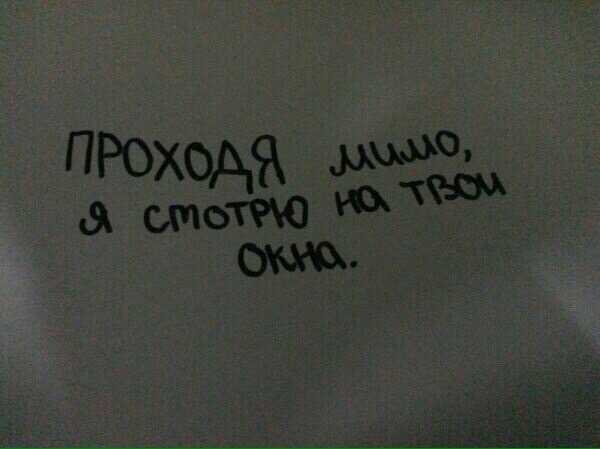 ПРОХОДЯ мимо,
я смотрю на твои
окна.